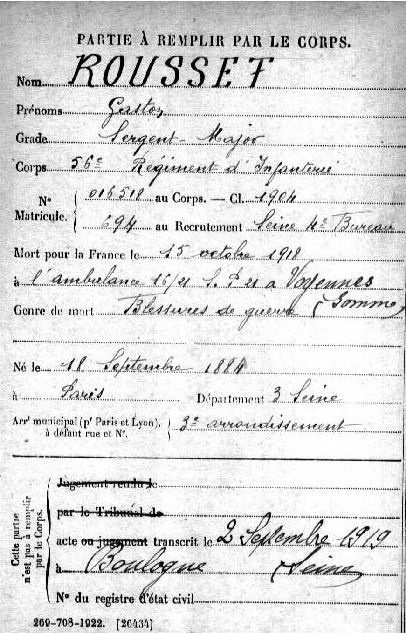 PARTIE À REMPLIR PAR LE CORPS.
Nom ROUSSET
Prénoms Gaston
Grade Sergent-Major
Corps 56e Régiment d'Infanterie
N° Matricule. { 016510 au Corps. — Cl. 1904
294 au Recrutement Seine 4e Bureau
Mort pour la France le 15 octobre 1918
à l'ambulance 16/21 S.P. 21 à Voyennes
Genre de mort Blessures de guerre (Somme)
Né le 18 Septembre 1884
à Paris Département Seine
Arrt municipal (pr Paris et Lyon), à défaut rue et N°. { 3e arrondissement
Cette partie n'est pas à remplir par le Corps.
Jugement rendu le
par le Tribunal de
acte ou jugement transcrit le 2 Septembre 1919
à Boulogne (Seine)
N° du registre d'état civil
269-708-1922. [26434]